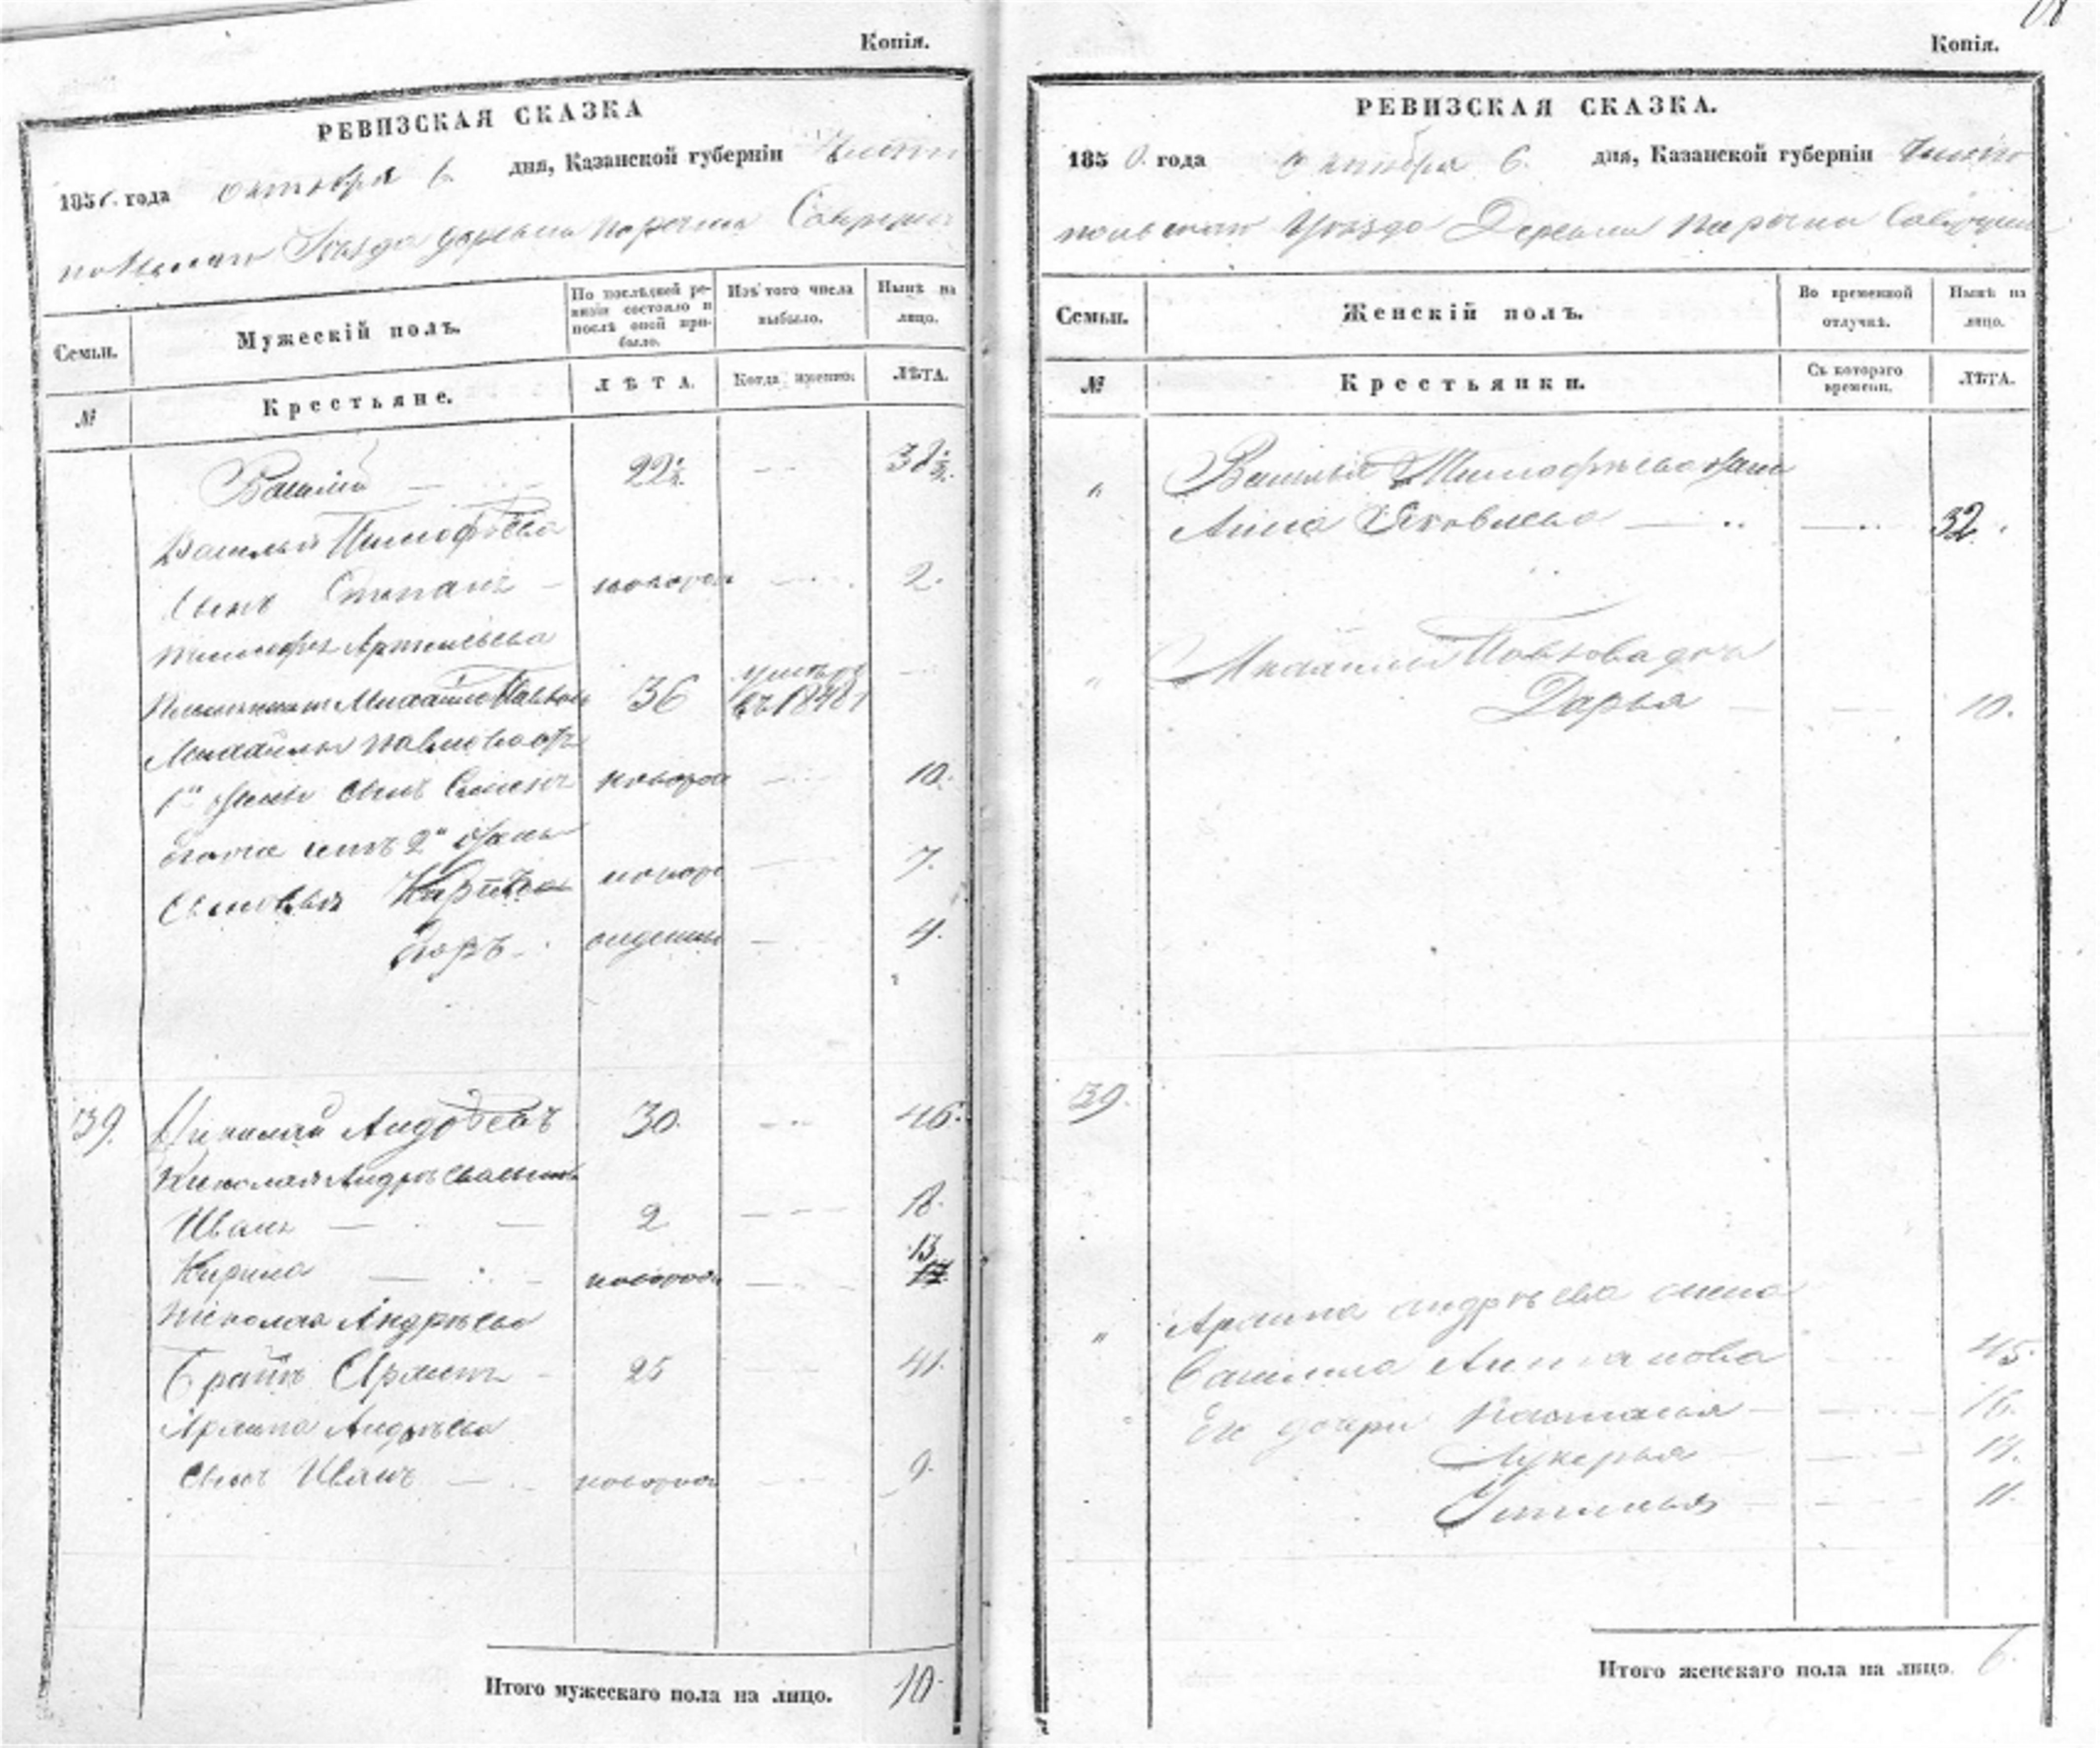 Копія.
РЕВИЗСКАЯ СКАЗКА
185 года октября 6. дня, Казанской губерніи Чисто
польскаго Уѣзда деревни
Семьи.
Мужескій полъ.
По послѣдней ре-
визіи состояло и
послѣ оной при-
было.
Изъ того числа
выбыло.
Нынѣ на
лицо.
№
Крестьяне.
ЛѢТА.
Когда именно.
ЛѢТА.
Василій 22½ 38½
Василья Тимофѣева
сынъ Степанъ новорож 2.
Тимофея Артемьева
племянникъ Михайло Павловъ 36 умеръ въ 1848
Михайлы Павлова отъ
1й жены сынъ новорож 10.
Его же отъ 2й жены
сыновья новоро 7.
Егоръ 4.
39. Николай Андреевъ 30. 46.
Николая Андреева сыновья
Иванъ 2 18.
Кирила новорож 13
Николая Андреева
братъ 25 41.
Андреева
сынъ Иванъ новорож 9.
Итого мужескаго пола на лицо. 10.
Копія.
РЕВИЗСКАЯ СКАЗКА.
1850. года октября 6. дня, Казанской губерніи Чисто
польскаго Уѣзда Деревни
Семьи.
Женскій полъ.
Во временной
отлучкѣ.
Нынѣ на
лицо.
№
Крестьянки.
Съ котораго
времени.
ЛѢТА.
" Василья Тимофѣева жена
Анна Яковлева 32.
" Михайлы Павлова дочь
Дарья 10.
39.
" Андреева жена
45.
Его дочери Настасья 16.
Лукерья
Устинья 11.
Итого женскаго пола на лицо. 6.